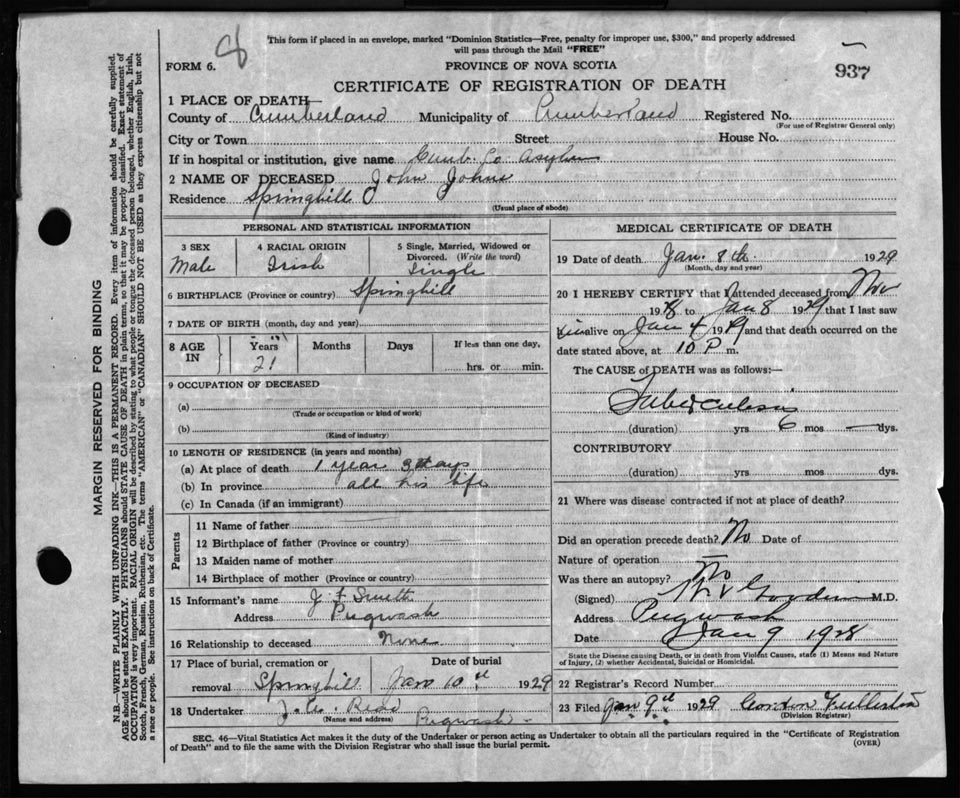 8
This form if placed in an envelope, marked "Dominion Statistics—Free, penalty for improper use, $300," and properly addressed
will pass through the Mail "FREE"
FORM 6.
PROVINCE OF NOVA SCOTIA
937
CERTIFICATE OF REGISTRATION OF DEATH
1 PLACE OF DEATH—
County of Cumberland Municipality of Cumberland Registered No.
(For use of Registrar General only)
City or Town Street House No.
If in hospital or institution, give name Cumb. Co Asylum
2 NAME OF DECEASED John Johns
Residence Springhill
(Usual place of abode)
PERSONAL AND STATISTICAL INFORMATION
3 SEX 4 RACIAL ORIGIN 5 Single, Married, Widowed or
Divorced. (Write the word)
Male Irish Single
6 BIRTHPLACE (Province or country) Springhill
7 DATE OF BIRTH (month, day and year)
8 AGE IN Years Months Days If less than one day,
21 hrs. or min.
9 OCCUPATION OF DECEASED
(a)
(Trade or occupation or kind of work)
(b)
(Kind of industry)
10 LENGTH OF RESIDENCE (in years and months)
(a) At place of death 1 year 3 days
(b) In province all his life
(c) In Canada (if an immigrant)
Parents
11 Name of father
12 Birthplace of father (Province or country)
13 Maiden name of mother
14 Birthplace of mother (Province or country)
15 Informant's name J F Smith
Address Pugwash
16 Relationship to deceased None
17 Place of burial, cremation or Date of burial
removal Springhill Jan 10th 1929
18 Undertaker J. A. Read Pugwash
(Name and address)
MEDICAL CERTIFICATE OF DEATH
19 Date of death Jan. 8th. 1929
(Month, day and year)
20 I HEREBY CERTIFY that I attended deceased from Nov
1928 to Jan 8 1929 that I last saw
him alive on Jan 4 1929 and that death occurred on the
date stated above, at 10 P m.
The CAUSE of DEATH was as follows:—
Tuberculosis
(duration) yrs 6 mos — dys.
CONTRIBUTORY
(duration) yrs. mos. dys.
21 Where was disease contracted if not at place of death?
Did an operation precede death? No Date of
Nature of operation
Was there an autopsy? No
(Signed) M.D.
Address Pugwash
Date Jan 9 1928
State the Disease causing Death, or in death from Violent Causes, state (1) Means and Nature
of Injury, (2) whether Accidental, Suicidal or Homicidal.
22 Registrar's Record Number
23 Filed Jan 9th 1929 Gordon Fullerton
(Division Registrar)
SEC. 46—Vital Statistics Act makes it the duty of the Undertaker or person acting as Undertaker to obtain all the particulars required in the "Certificate of Registration
of Death" and to file the same with the Division Registrar who shall issue the burial permit.
(OVER)
MARGIN RESERVED FOR BINDING
N.B.—WRITE PLAINLY WITH UNFADING INK—THIS IS A PERMANENT RECORD. Every item of information should be carefully supplied.
AGE should be stated EXACTLY. PHYSICIANS should STATE CAUSE OF DEATH in plain terms, so that it may be properly classified. Exact statement of
OCCUPATION is very important. RACIAL ORIGIN will be described by stating to what people or tongue the deceased person belonged, whether English, Irish,
Scotch, French, German, Russian, Ruthenian, etc. The terms "AMERICAN" or "CANADIAN" SHOULD NOT BE USED as they express citizenship but not
a race or people. See instructions on back of Certificate.